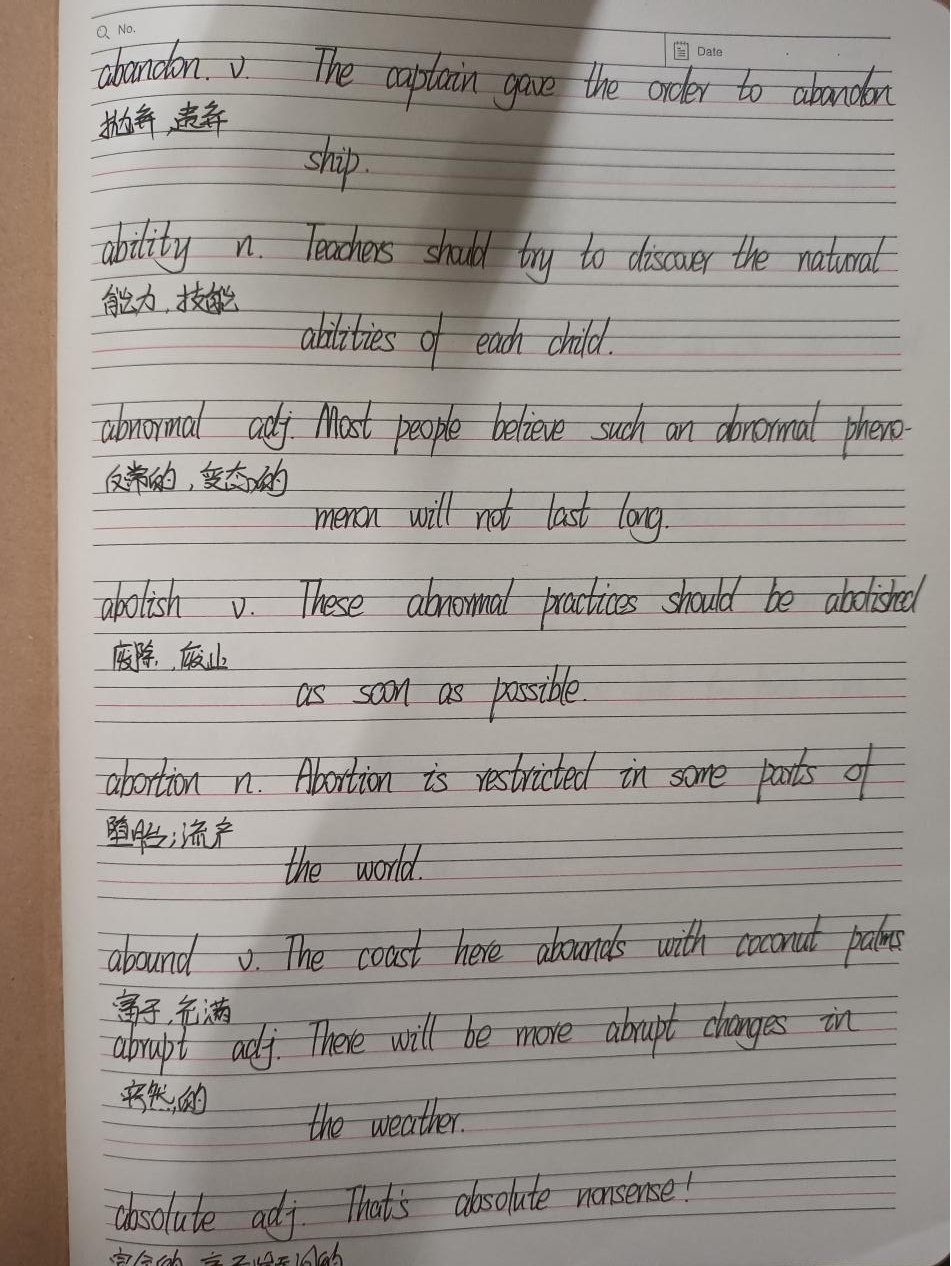 No.
Date
abandon. v. The captain gave the order to abandon
抛弃,遗弃
ship.
ability n. Teachers should try to discover the natural
能力,技能
abilities of each child.
abnormal adj. Most people believe such an abnormal pheno-
反常的,变态的
menon will not last long.
abolish v. These abnormal practices should be abolished
废除,废止
as soon as possible.
abortion n. Abortion is restricted in some parts of
堕胎;流产
the world.
abound v. The coast here abounds with coconut palms
富于,充满
abrupt adj. There will be more abrupt changes in
突然的
the weather.
absolute adj. That's absolute nonsense!